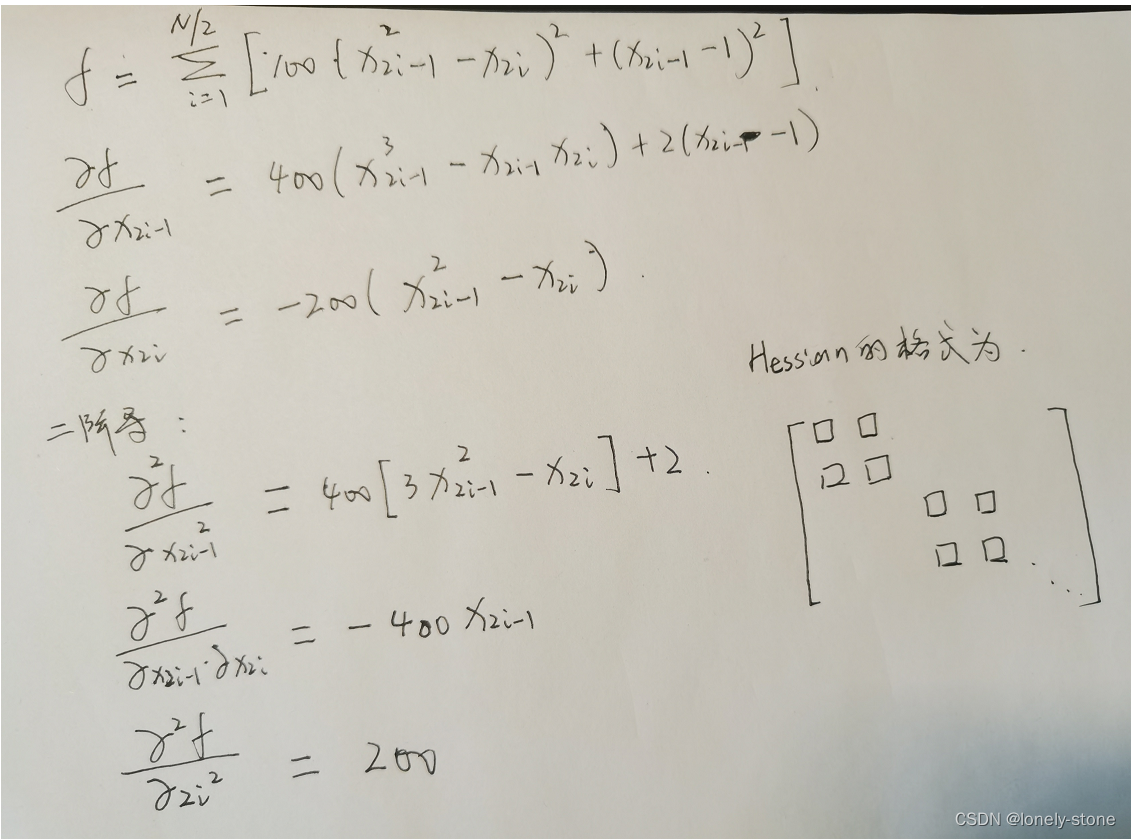 f = \sum_{i=1}^{N/2} [100(x_{2i-1}^2 - x_{2i})^2 + (x_{2i-1} - 1)^2].
\frac{∂f}{∂x_{2i-1}} = 400(x_{2i-1}^3 - x_{2i-1} x_{2i}) + 2(x_{2i-1} - 1)
\frac{∂f}{∂x_{2i}} = -200(x_{2i-1}^2 - x_{2i}).
Hessian的格式为.
二阶导:
\frac{∂^2 f}{∂x_{2i-1}^2} = 400[3x_{2i-1}^2 - x_{2i}] + 2.
\frac{∂^2 f}{∂x_{2i-1}·∂x_{2i}} = -400 x_{2i-1}
\frac{∂^2 f}{∂_{2i}^2} = 200
CSDN @lonely-stone